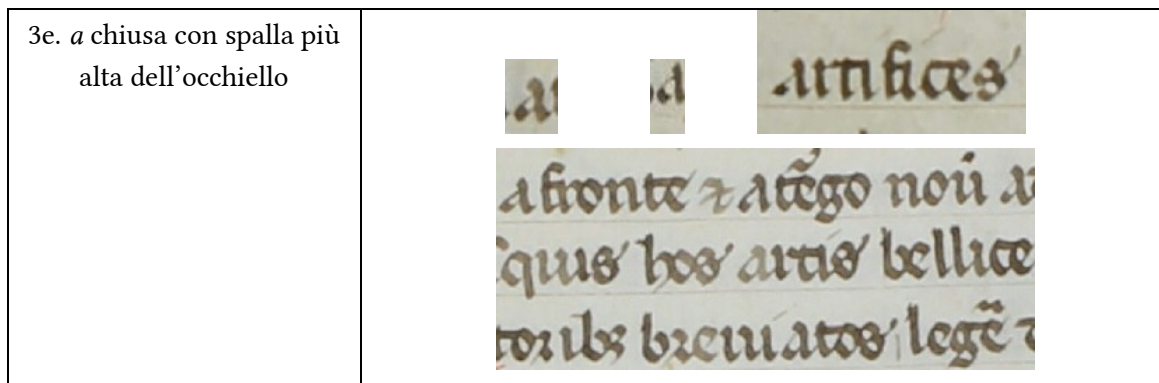 3e. a chiusa con spalla più
alta dell’occhiello
.a
a
artifices
a fronte ⁊ a tẽgo noũ
quis hos artis bellice
toribꝫ breuiatos legẽ